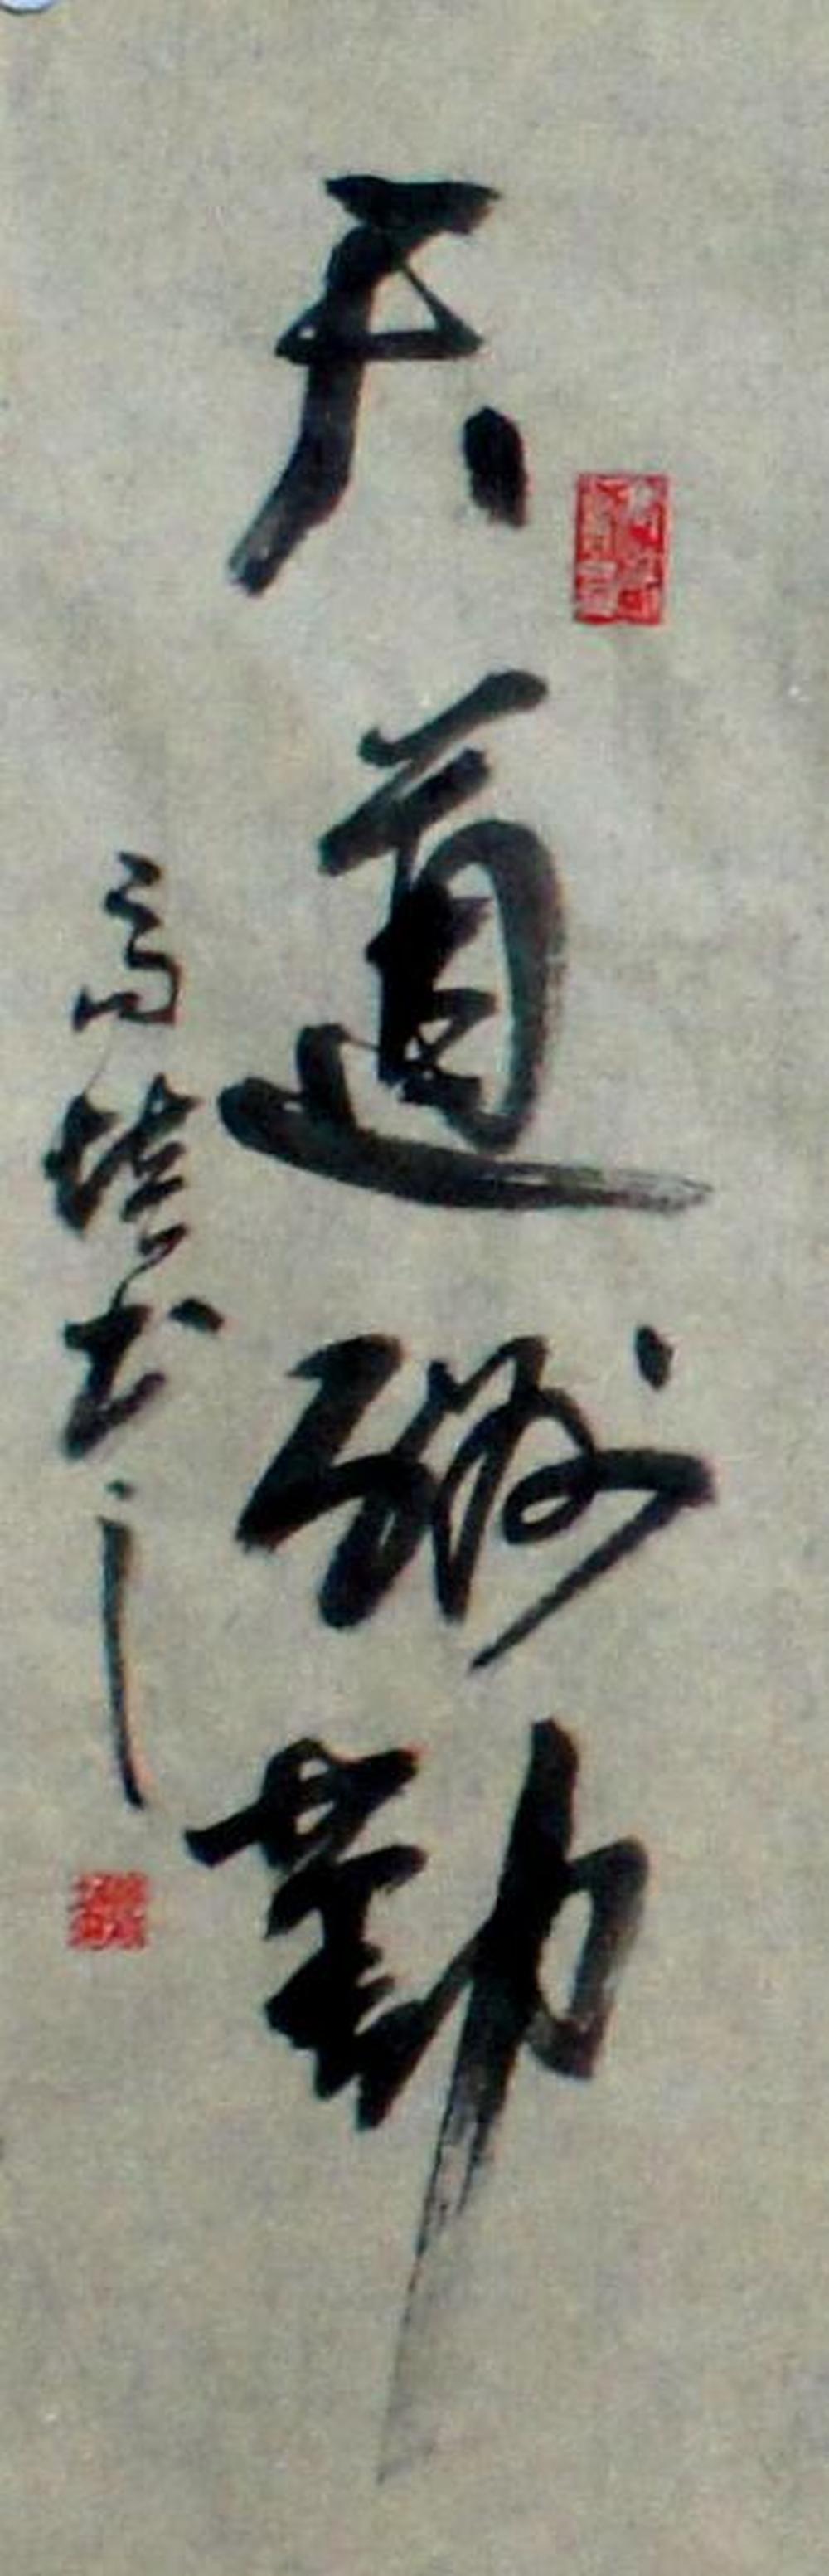 天道酬勤
高 书